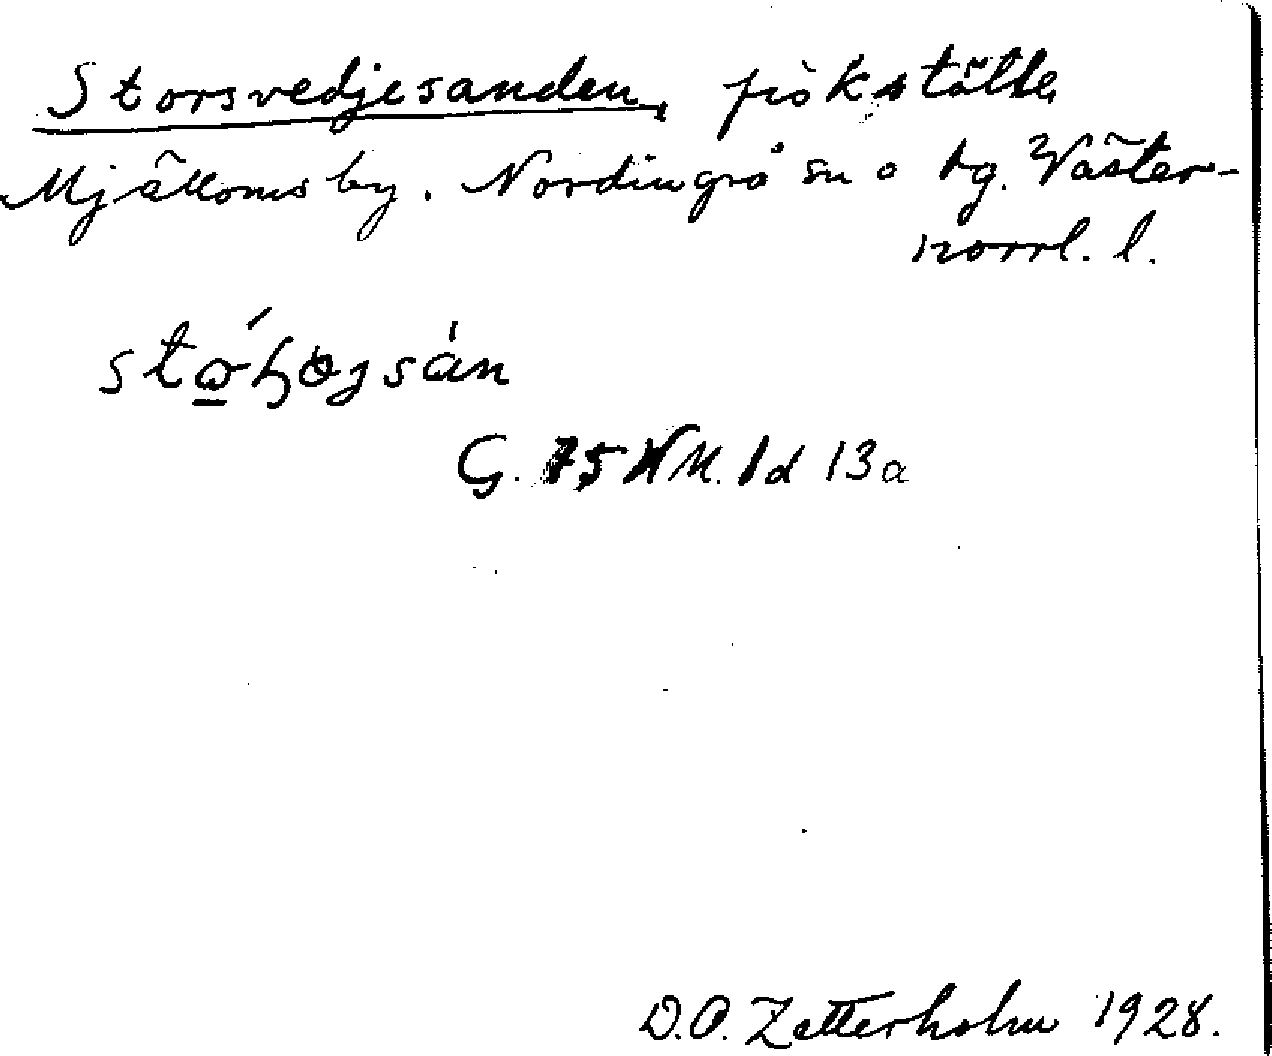 Storsvedjesanden, fiskställe,
Mjälloms by. Nordingrå sn o tg. Väster-
norrl. l.
G. 75 NM. 1d 13a
D.O. Zetterholm 1928.